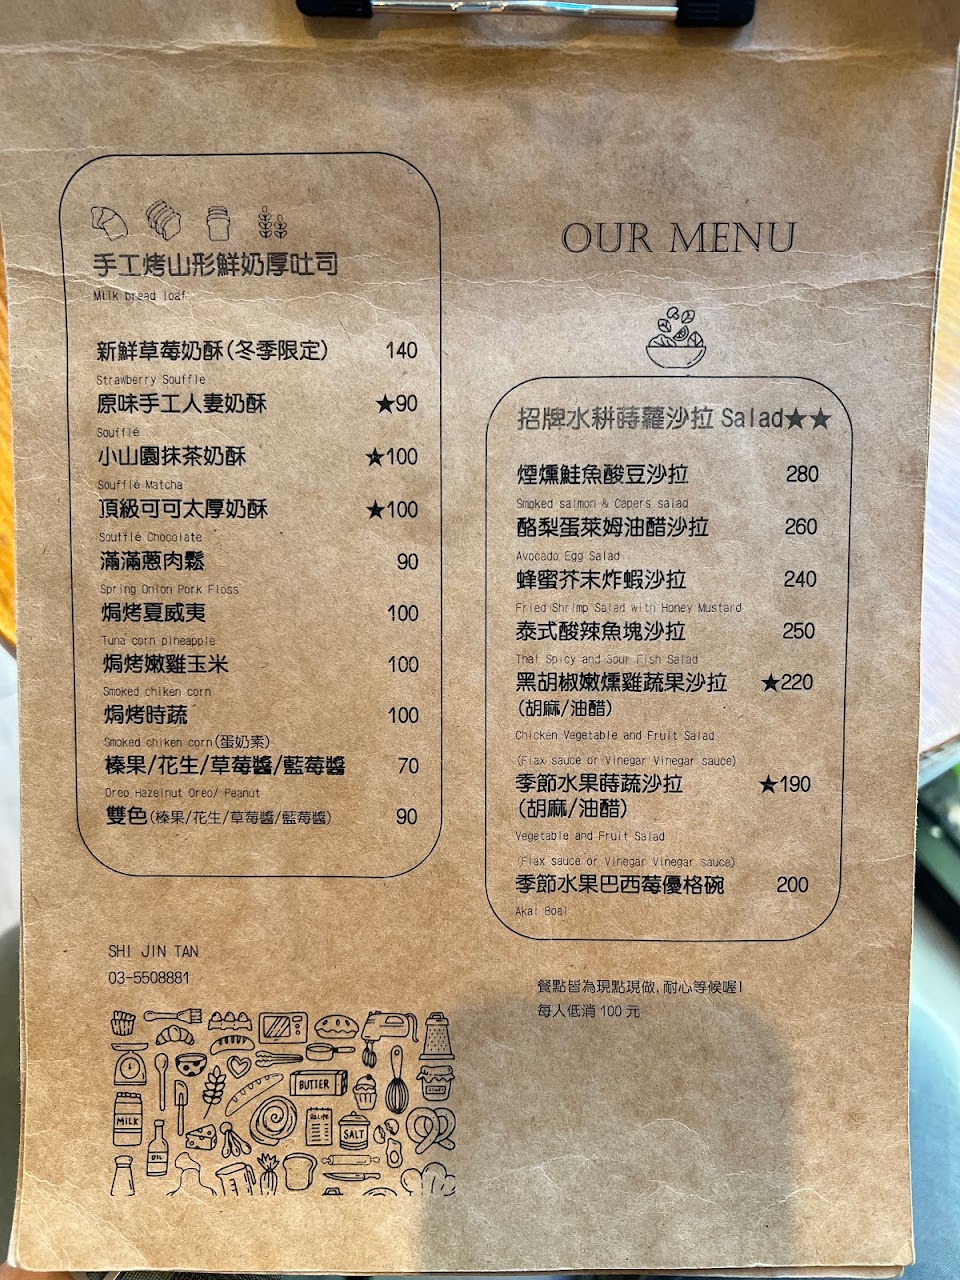 手工烤山形鮮奶厚吐司
Milk bread loaf
新鮮草莓奶酥(冬季限定) 140
Strawberry Souffle
原味手工人妻奶酥 ★90
Soufflé
小山園抹茶奶酥 ★100
Soufflé Matcha
頂級可可太厚奶酥 ★100
Soufflé Chocolate
滿滿蔥肉鬆 90
Spring Onion Pork Floss
焗烤夏威夷 100
Tuna corn pineapple
焗烤嫩雞玉米 100
Smoked chiken corn
焗烤時蔬 100
Smoked chiken corn(蛋奶素)
榛果/花生/草莓醬/藍莓醬 70
Oreo Hazelnut Oreo/ Peanut
雙色(榛果/花生/草莓醬/藍莓醬) 90
SHI JIN TAN
03-5508881
BUTTER
MILK
OIL
RECIPE
SALT
HONEY
OUR MENU
招牌水耕蒔蘿沙拉 Salad★★
煙燻鮭魚酸豆沙拉 280
Smoked salmon & Capers salad
酪梨蛋萊姆油醋沙拉 260
Avocado Egg Salad
蜂蜜芥末炸蝦沙拉 240
Fried Shrimp Salad with Honey Mustard
泰式酸辣魚塊沙拉 250
Thai Spicy and Sour Fish Salad
黑胡椒嫩燻雞蔬果沙拉 ★220
(胡麻/油醋)
Chicken Vegetable and Fruit Salad
(Flax sauce or Vinegar Vinegar sauce)
季節水果蒔蔬沙拉 ★190
(胡麻/油醋)
Vegetable and Fruit Salad
(Flax sauce or Vinegar Vinegar sauce)
季節水果巴西莓優格碗 200
Akai Boal
餐點皆為現點現做,耐心等候喔!
每人低消 100 元